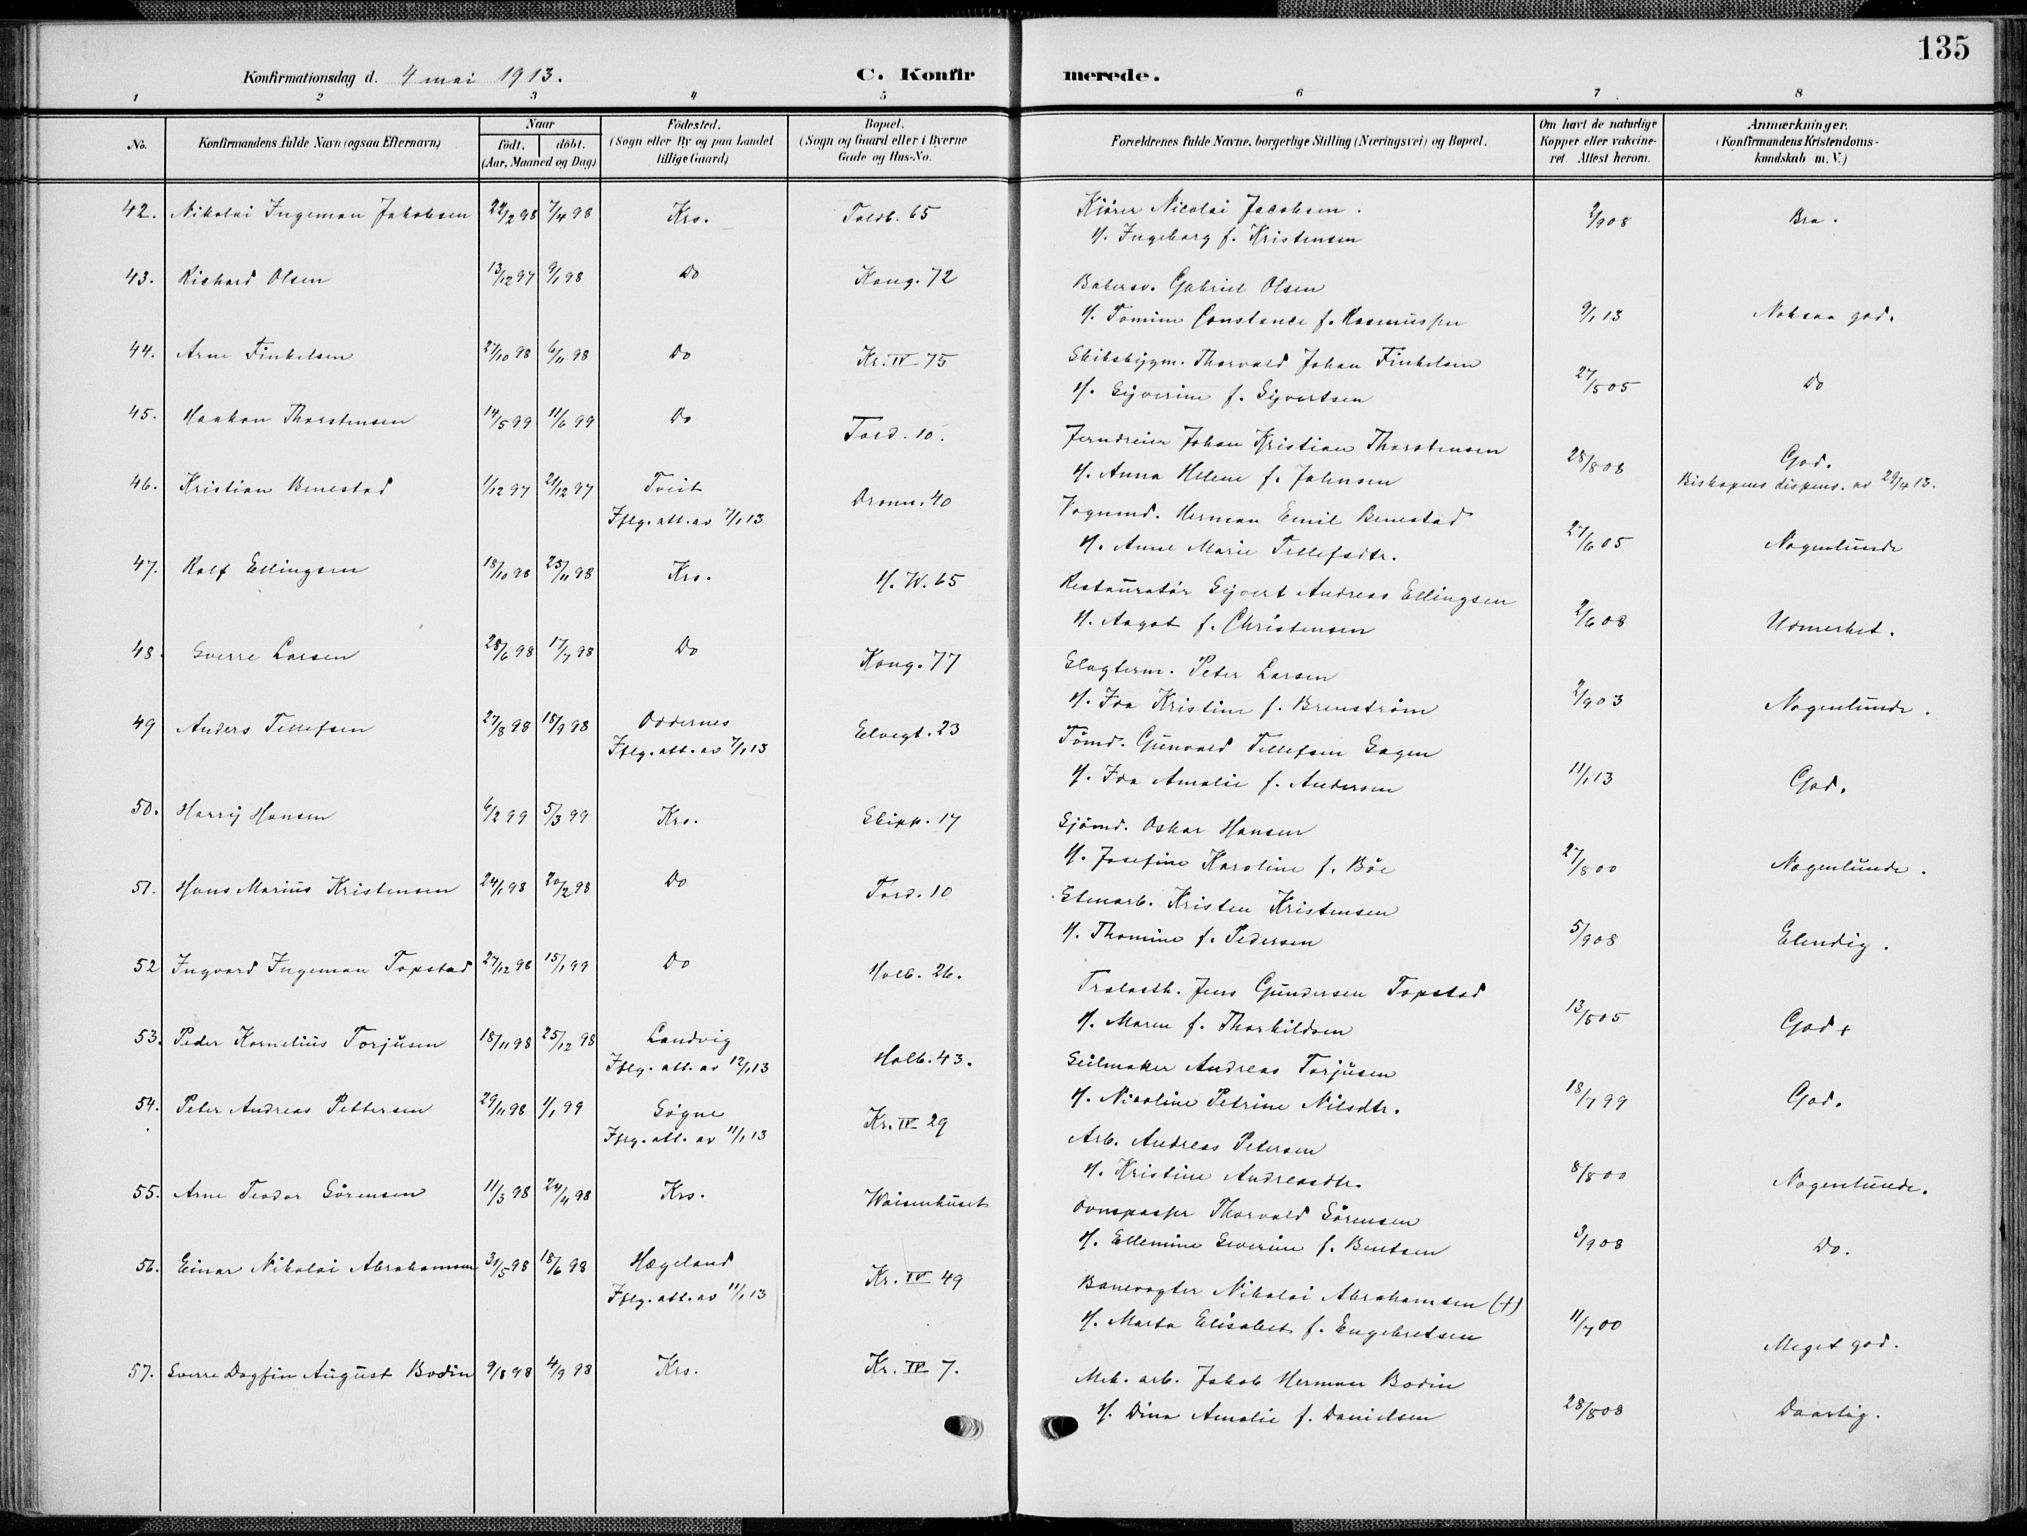 135
Konfirmationsdag d. 4 mai 1913. C. Konfirmerede.
1 2 3 4 5 6 7 8
No. Konfirmandens fulde Navn (ogsaa Efternavn) Naar født. døbt. (Aar, Maaned og Dag) Fødested. (Sogn eller By og paa Landet tillige Gaard) Bopæl. (Sogn og Gaard eller i Byerne Gade og Hus-No. Forældrenes fulde Navne, borgerlige Stilling (Næringsvei) og Bopæl. Om havt de naturlige Kopper eller vakcineret. Attest herom. Anmærkninger. (Konfirmandens Kristendomskundskab m. V.)
42. Nikolai Ingeman Jakobsen 22/2 98 7/4 98 Krs. Toldb. 65 Kjører Nicolai Jacobsen. 2/9 08 Bra.
H. Ingeborg f. Kristensen
43. Richard Olsen 13/12 97 9/1 98 Do Kong. 72 Bakersv. Gabriel Olsen
H. Tomine Constance f. Rasmussen 9/1 13 Noksaa god.
44. Arne Finkelsen 27/10 98 6/11 98 Do Kr. IV 75 Skibsbygm. Thorvald Johan Finkelsen
H. Syverine f. Syvertsen 27/5 05 Do
45. Haakon Thorstensen 14/5 99 11/6 99 Do Tord. 10. Jerndreier Johan Kristian Thorstensen
H. Anna Helene f. Johnsen 28/8 08 God.
Biskopens dispens. av 29/4 13.
46. Kristian Benestad 1/12 97 21/12 97 Tveit Dronn. 40 Vognmd. Herman Emil Benestad
Iflg. att. av 7/1 13
H. Anne Marie Tellefsdtr. 27/6 05 Nogenlunde
47. Rolf Ellingsen 18/10 98 25/11 98 Krs. H. W. 65 Restauratør Syvert Andreas Ellingsen
H. Aagot f. Christensen 2/6 08 Udmerket.
48. Sverre Larsen 28/6 98 17/7 98 Do Kong. 77 Slagterm. Peter Larsen
H. Ida Kristine f. Brenstrøm 2/9 03 Nogenlunde.
49 Anders Tellefsen 27/8 98 18/9 98 Oddernes Elvegt. 23 Tømd. Gunvald Tellefsen Sagen
Iflg. att. av 7/1 13
H. Ida Amalie f. Andersen 11/1 13 God.
50. Harry Hansen 6/2 99 5/3 99 Krs. Skipp. 17 Sjømd. Oskar Hansen
H. Josefine Karoline f. Bøe 27/8 00 Nogenlunde.
51. Hans Marius Kristensen 24/1 98 20/2 98 Do Tord. 10 Stenarb. Kristen Kristensen
H. Thomine f. Pedersen 5/9 08 Elendig.
52 Ingvard Ingeman Topstad 27/12 98 15/1 99 Do Holb. 26. Trælasth. Jens Gundersen Topstad
H. Maren f. Thorkildsen 13/5 05 God +
53. Peder Kornelius Torjusen 18/11 98 25/12 98 Landvig Holb. 43. Seilmaker Andreas Torjusen
Iflg. att. av 12/1 13
H. Nicoline Petrine Nilsdtr. 18/7 99 God.
54. Peter Andreas Pettersen 29/11 98 1/1 99 Søgne Kr. IV 29 Arb. Andreas Petersen
Iflg. att. av 11/1 13
H. Kristine Andreasdtr. 8/8 00 Nogenlunde.
55. Arne Teodor Sørensen 11/3 98 24/4 98 Krs. Waisenhuset Ovnspasser Thorvald Sørensen
H. Ellemine Severine f. Bentsen 3/9 08 Do.
56. Einar Nikolai Abrahamsen 31/5 98 18/6 98 Hægeland Kr. IV 49 Banevogter Nikolai Abrahamsen (+)
Iflg. att. av 11/1 13
H. Marta Elisabet f. Engebretsen 11/7 00 Meget god.
57. Sverre Dagfin August Bodin 9/8 98 4/9 98 Krs. Kr. IV 7. Mek. arb. Jakob Herman Bodin
H. Dina Amalie f. Danielsen 28/8 08 Daarlig.